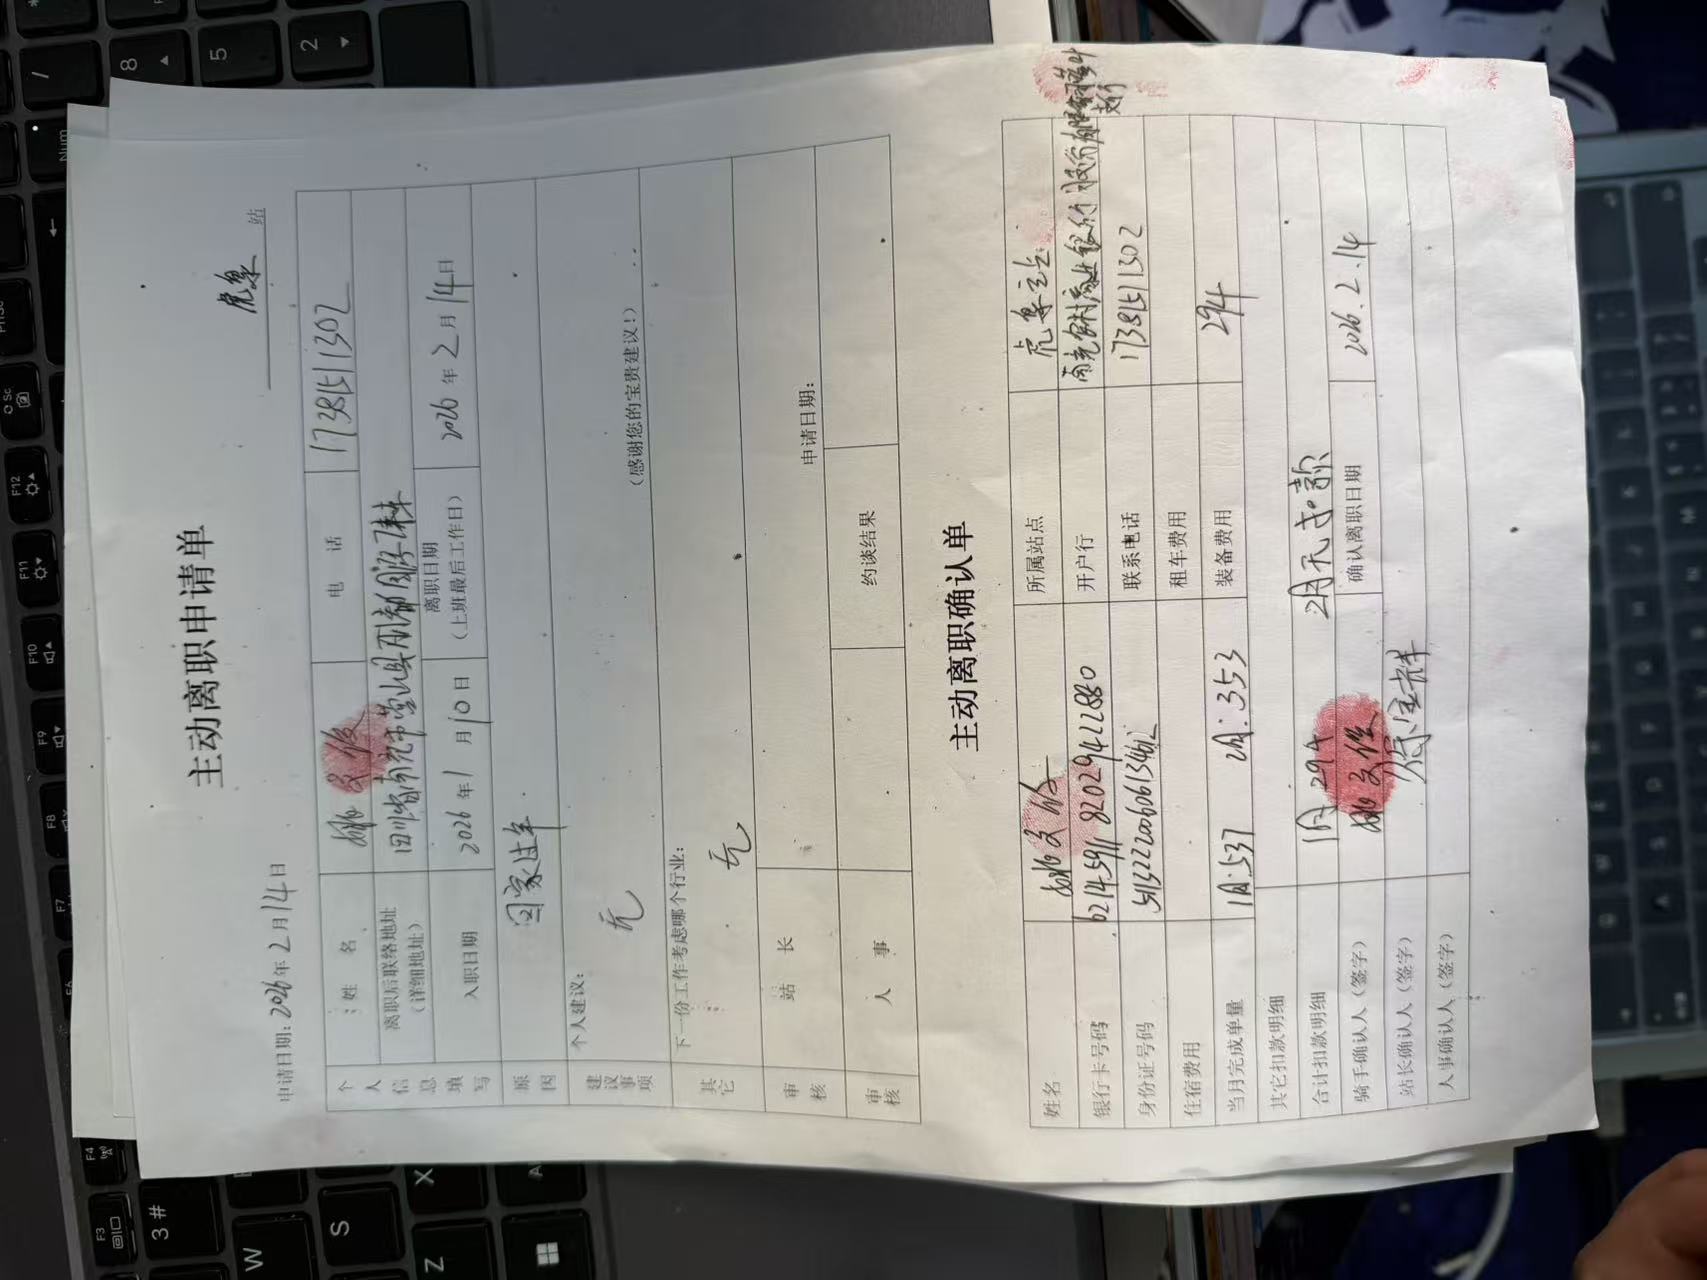 主动离职申请单
虎泉 站
申请日期：2026年2月14日
个人信息填写
姓 名 姚文俊 电 话 17381511302
离职后联络地址
（详细地址）
四川省南充市营山县
入职日期 2026年1月10日 离职日期
（上班最后工作日） 2026年2月14日
原因 回家过年
建议事项 个人建议：
无
（感谢您的宝贵建议！）
其它 下一份工作考虑哪个行业：
无
审核 站 长 申请日期：
审核 人 事 约谈结果
主动离职确认单
姓名 姚文俊 所属站点 虎泉站
银行卡号码 6214591182029422880 开户行 南充农村商业银行股份有限
支行
身份证号码 联系电话 17381511302
住宿费用 租车费用
当月完成单量 1月:537 2月:353 装备费用 294
其它扣款明细
合计扣款明细 1月294 2月无扣款
骑手确认人（签字） 姚文俊 确认离职日期 2026.2.14
站长确认人（签字）
人事确认人（签字）
3#
W
S
Z
X
F3
F4
F6
F7
F8
F9
F10
F11
F12
8
5
2
Num